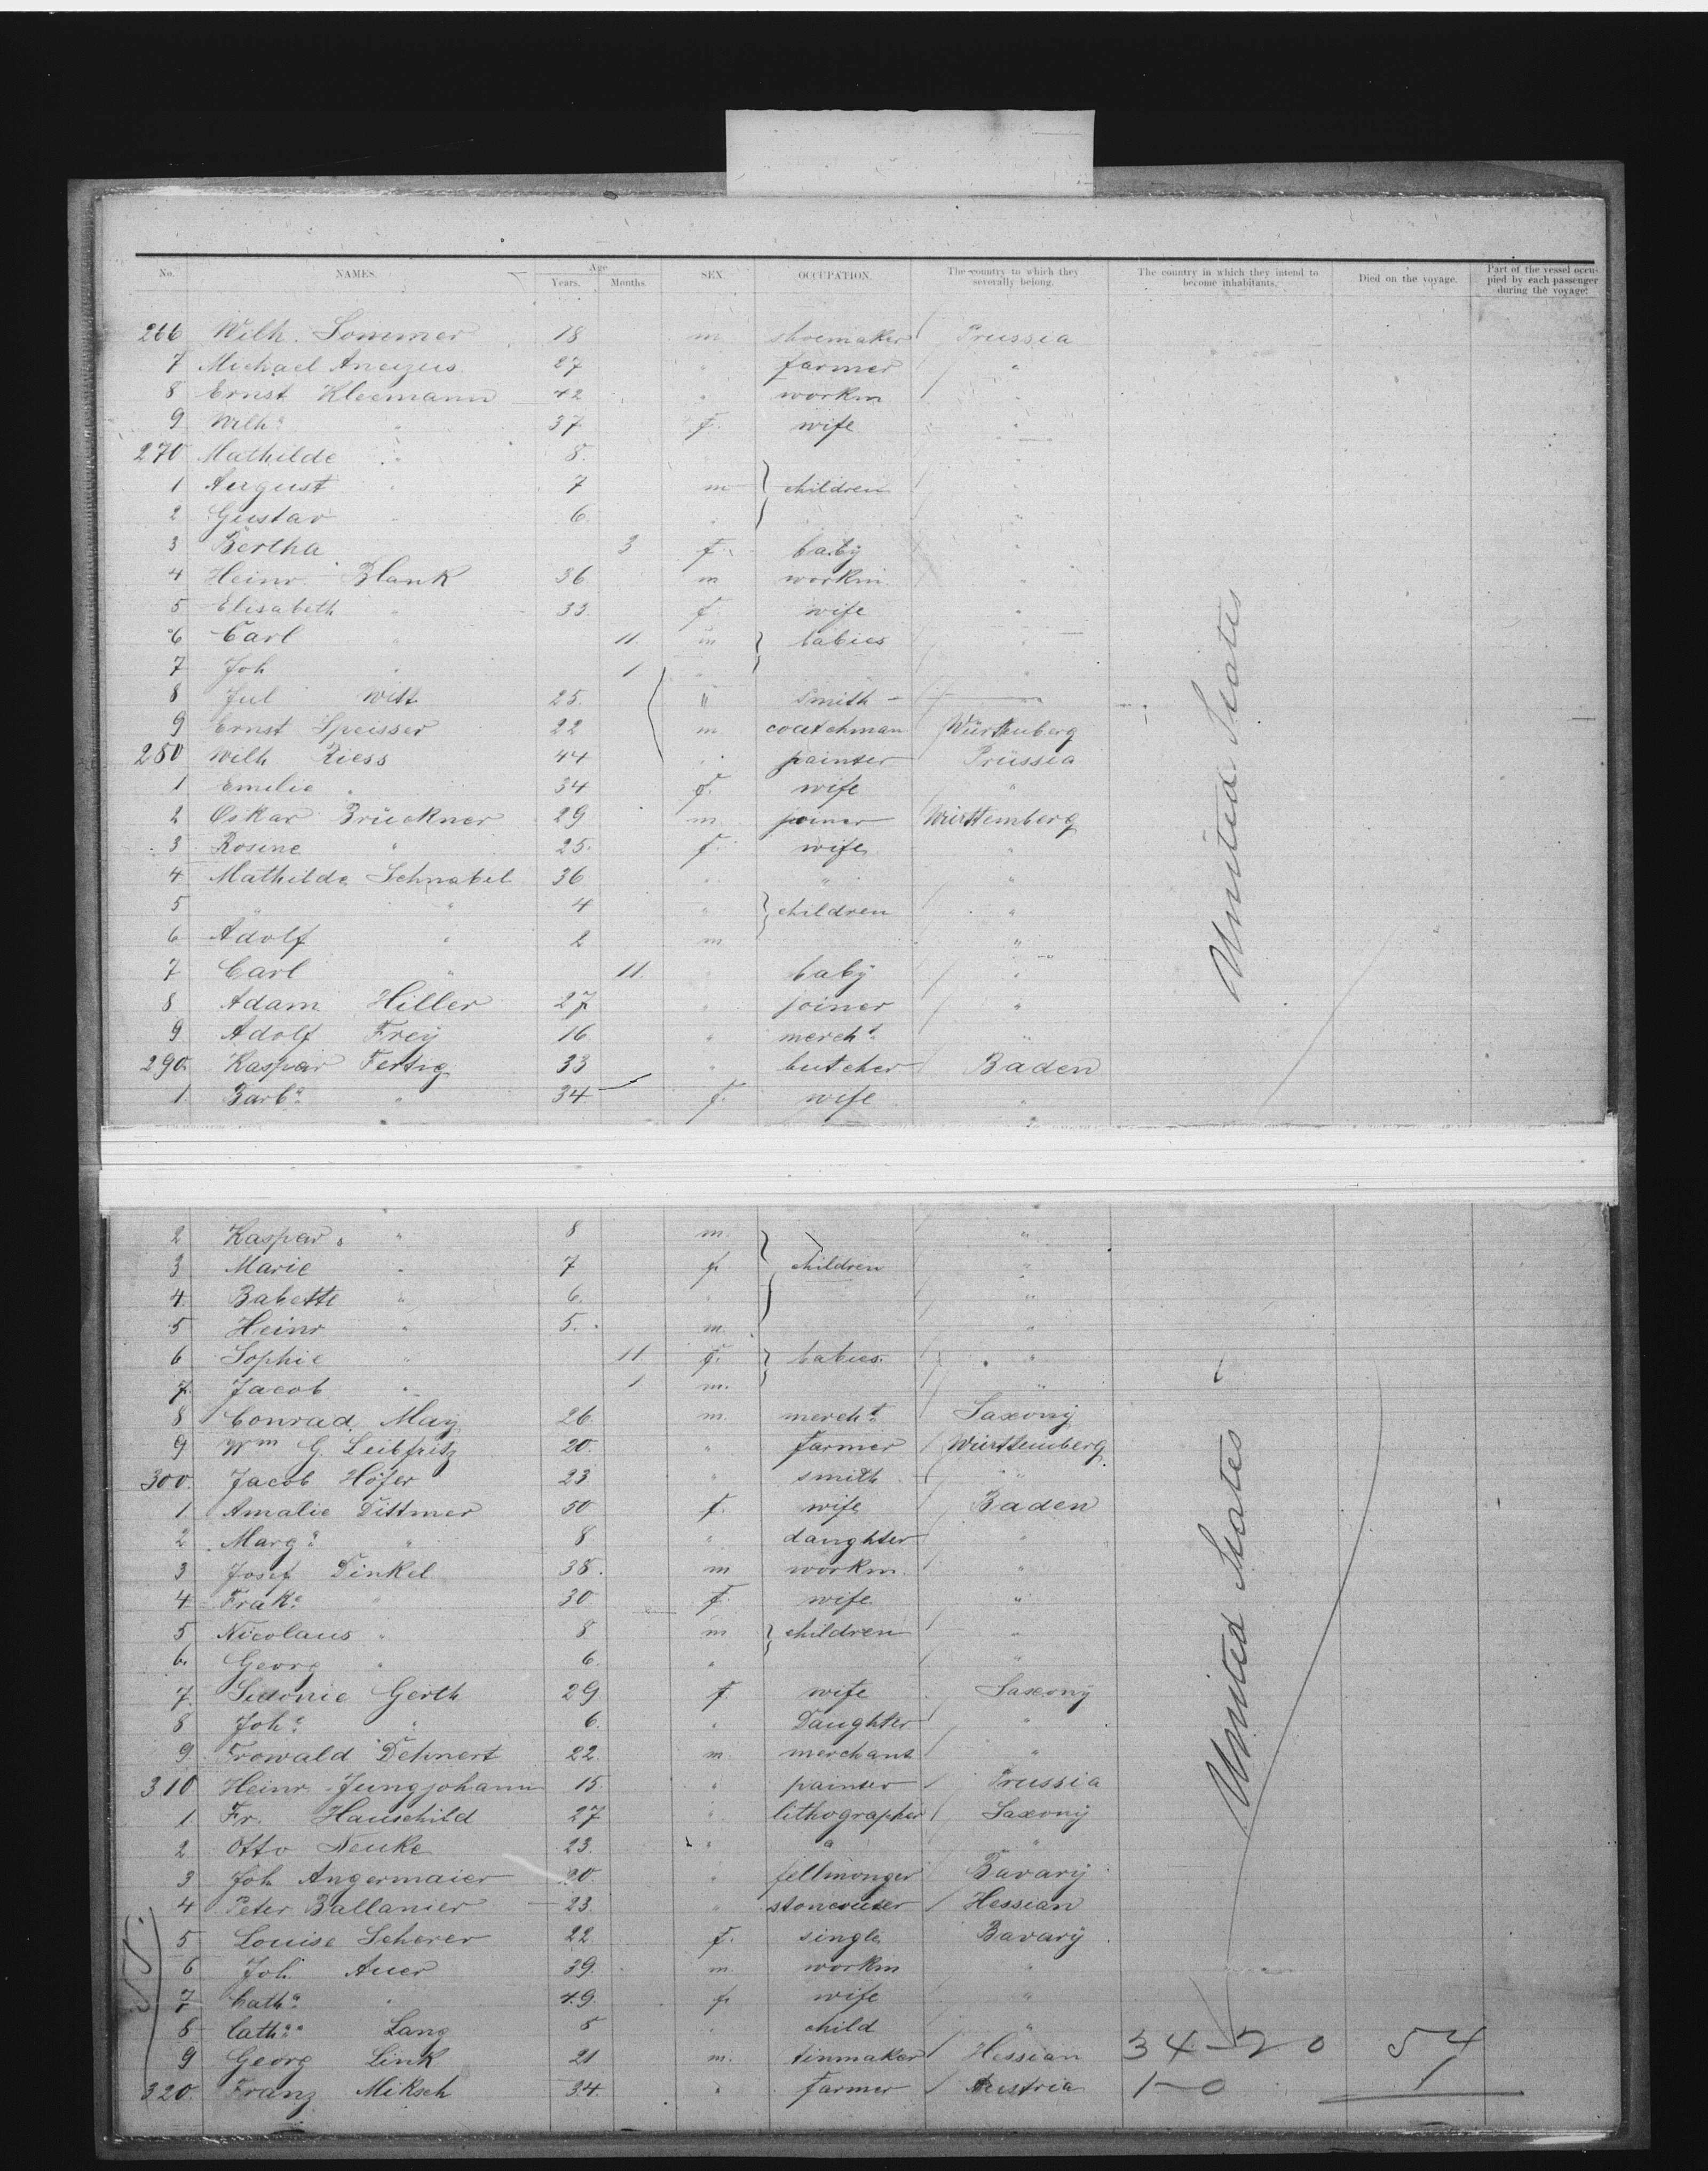 No. NAMES. Age Years. Months. SEX. OCCUPATION. The country to which they severally belong. The country in which they intend to become inhabitants. Died on the voyage. Part of the vessel occupied by each passenger during the voyage.
266 Wilh. Sommer 18 m shoemaker Prussia
7 Michael 27 " farmer "
8 Ernst Kleemann 42 " workm "
9 Wilh.a " 37 f. wife "
270 Mathilde " 8 "
1 August " 7 m children "
2 Gustav " 6. " "
3 Bertha 3 f. baby "
4 Heinr. Blank 36 m workm "
5 Elisabeth " 33. f wife "
6 Carl " 11. m babies "
7 Joh " 1 " "
8 Jul Witt 25. " smith
9 Ernst Speisser 22 m coatchman Würtenberg
280 Wilh Riess 44 " painter Prüssia
1 Emilie " 34 f. wife "
2 Oskar Brückner 29 m joiner Württemberg
3 Rosine " 25. f. wife "
4 Mathilde Schnabel 36 " " "
5 " " 4 " children "
6 Adolf " 2 m "
7 Carl " 11. baby "
8 Adam Hiller 27 " joiner "
9 Adolf Frey 16 " mercht. "
290. Kaspar Fertig 33 " butcher Baden
1. Barb.a " 34 f. wife "
United States
2 Kaspar " 8 m. "
3 Marie " 7 f. children "
4. Babette " 6. " "
5 Heinr " 5. m. "
6 Sophie " 11 f. babies. "
7. Jacob " 1 m. "
8 Conrad May 26 m. mercht. Saxony
9 Wm G. Leibfritz 20. " farmer Württemberg
300. Jacob Höfer 23 " smith "
1 Amalie Dittmer 50 f. wife Baden
2 Marg.a " 8 " daughter "
3 Josef Dinkel 38. m workm. "
4 Frak.a " 30 f. wife "
5 Nicolaus " 8 m children "
6. Georg " 6. " "
7. Sidonie Gerth 29 f. wife Saxony
8 Joh.a " 6. " Daughter "
9 Trowald Dehnert 22. m. merchant "
310 Heinr. Jungjohann 15. " painter Prussia
1 Fr. Hauschild 27 " lithographer Saxony
2 Otto Neuke 23. " " "
3 Joh Angermaier 20. " fellmonger Bavary
4 Peter Ballanier 23. " stonecutter Hessian
5 Louise Scherer 22. f. single Bavary
6 Joh. Auer 39. m. workm "
7 Cath.a " 49. f. wife "
8 Cath.a Lang 5 " child "
9 Georg Link 21 m. tinmaker Hessian 34-20 54
320. Franz Miksch 34. " farmer Austria 1-0 1
United States